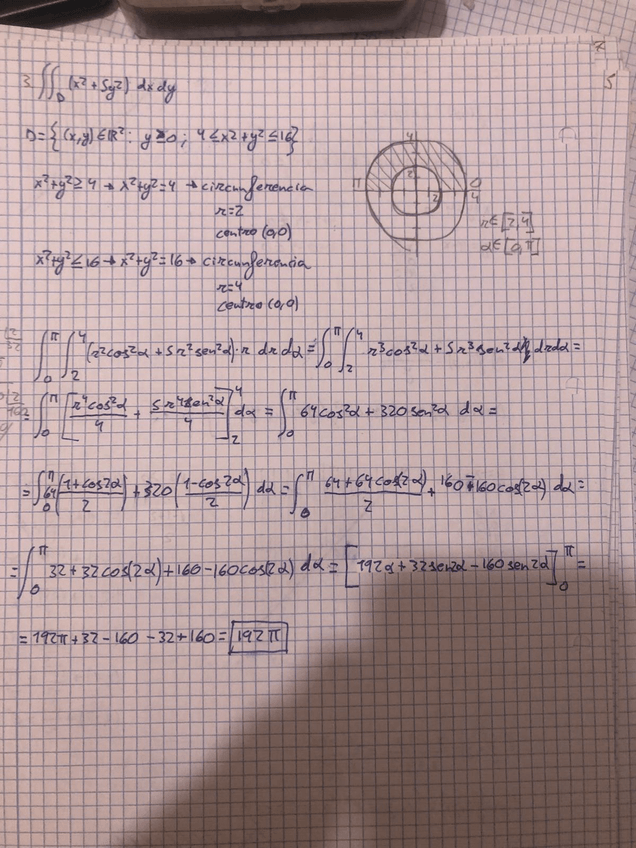 3. ∬_D (x²+5y²) dxdy
D={(x,y)∈ℝ²: y≥0; 4≤x2+y²≤16}
x²+y²≥4 → x²+y²=4 → circunferencia
r=2
centro (0,0)
x²+y²≤16 → x²+y²=16 → circunferencia
r=4
centro (0,0)
4
2
π
0
2
4
r∈[2,4]
α∈[0,π]
∫_0^π ∫_2^4 (r²cos²α + 5r²sen²α)·r dr dα = ∫_0^π ∫_2^4 r³cos²α + 5r³sen²α drdα =
= ∫_0^π [r⁴cos²α/4 + 5r⁴sen²α/4]_2^4 dα = ∫_0^π 64cos²α + 320sen²α dα =
= ∫_0^π 64(1+cos2α/2) + 320(1-cos2α/2) dα = ∫_0^π 64+64cos(2α)/2 + 160-160cos(2α) dα =
= ∫_0^π 32+32cos(2α)+160-160cos(2α) dα = [192α+32sen2α-160sen2α]_0^π =
= 192π+32-160-32+160= 192π